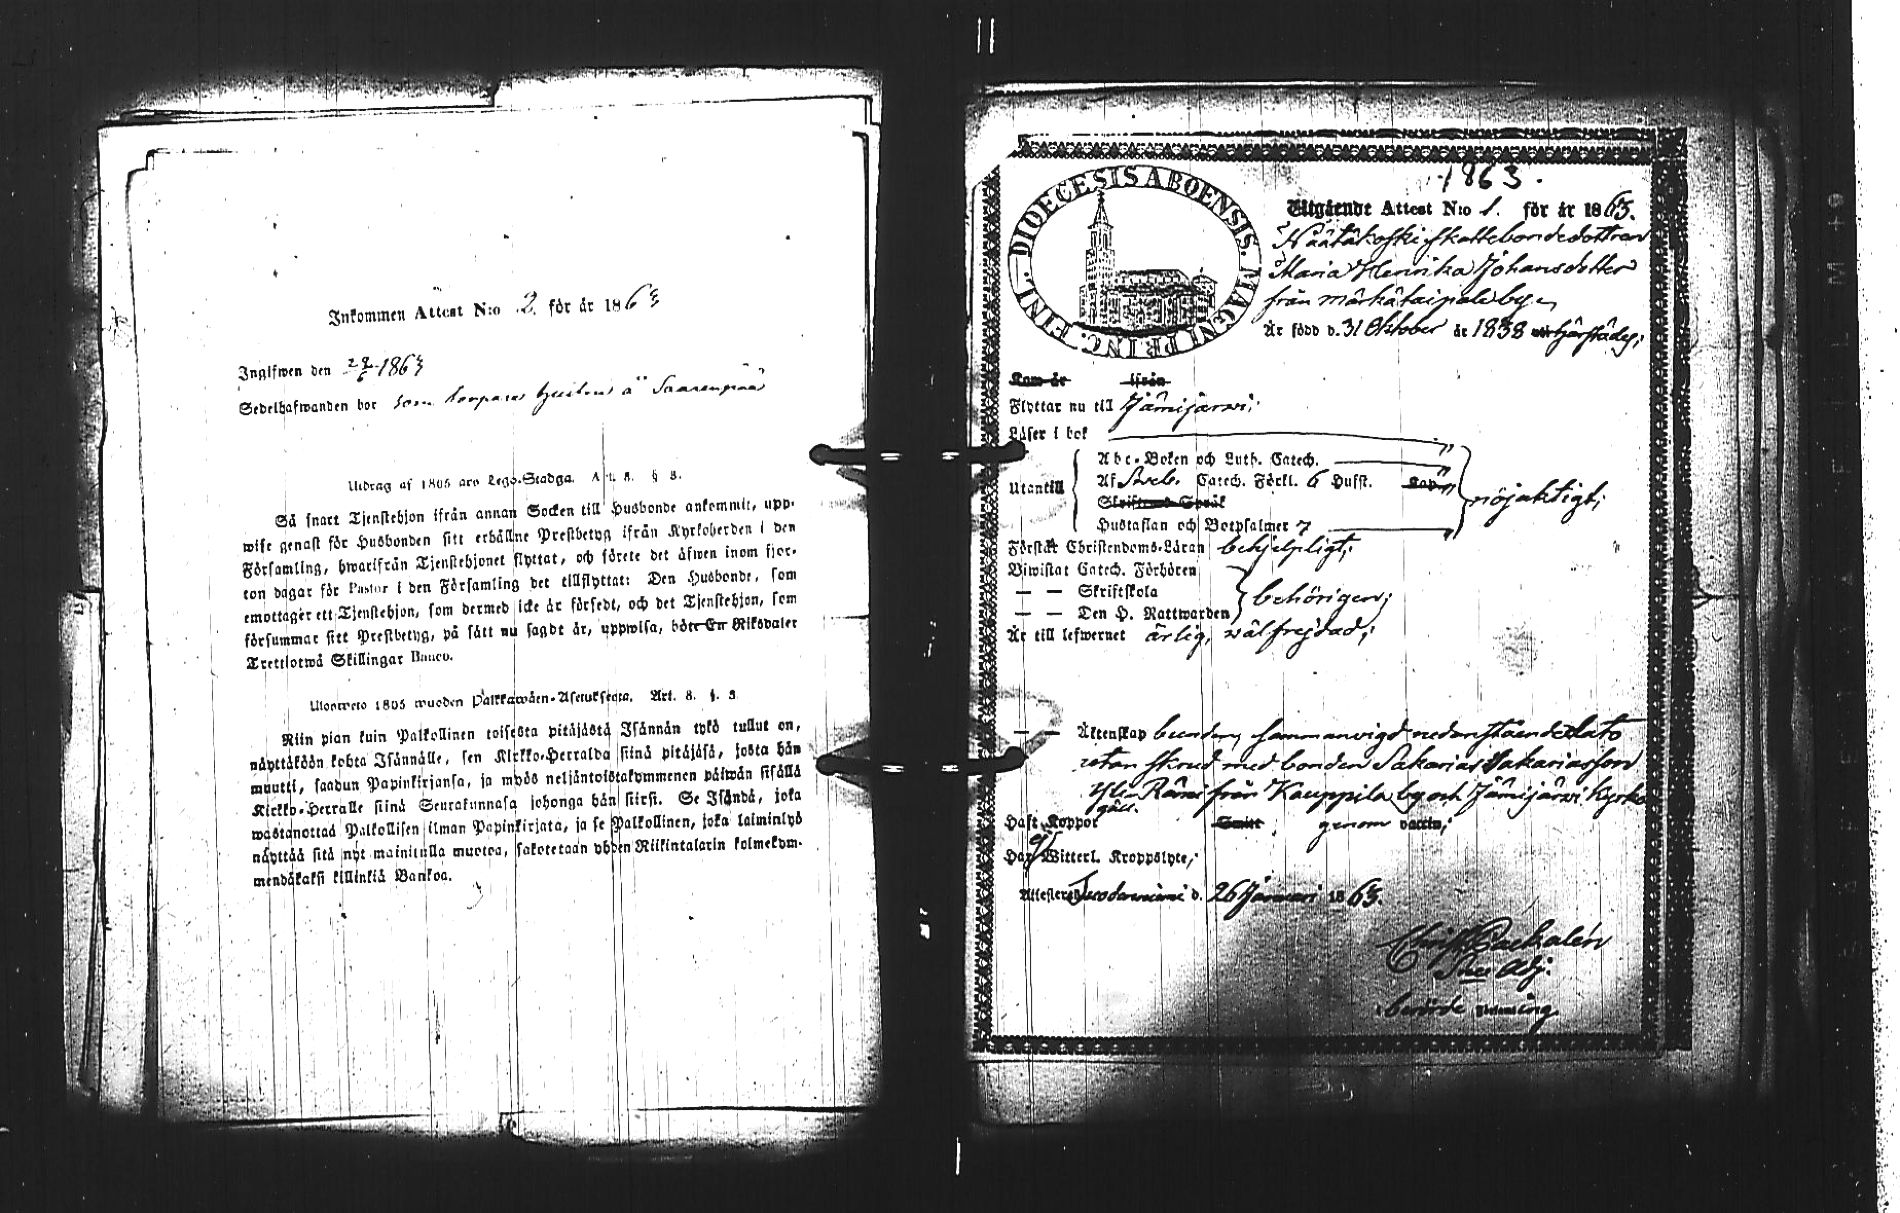 Inkommen Attest N:o 2. för år 1863
Ingifwen den 29/6 1863
Sedelhafwanden bor som torpares hustru å Saarenpää
Utdrag af 1805 års Lego-Stadga. Art. 8. § 3.
Så snart Tjenstehjon ifrån annan Socken till Husbonde ankommit, upp-
wise genast för Husbonden sitt erhållne Prestbetyg ifrån Kyrkoherden i den
Församling, hwarifrån Tjenstehjonet flyttat, och förete det äfwen inom fjor-
ton dagar för Pastor i den Församling det tillflyttat: Den Husbonde, som
emottager ett Tjenstehjon, som dermed icke är försedt, och det Tjenstehjon, som
försummar sitt Prestbetyg, på sätt nu sagdt är, uppwisa, böte En Riksdaler
Trettiotwå Skillingar Banco.
Ulosweto 1805 wuoden Palkkawäen-Asetuksesta. Art. 8. §. 3.
Niin pian kuin Palkollinen toisesta pitäjästä Isännän tykö tullut on,
näyttäköön kohta Isännälle, sen Kirkko-Herralda siinä pitäjäsä, josta hän
muutti, saadun Papinkirjansa, ja myös neljäntoistakymmenen päiwän sisällä
Kirkko-Herralle siinä Seurakunnasa johonga hän siirsi. Se Isändä, joka
wastanottaa Palkollisen ilman Papinkirjata, ja se Palkollinen, joka laiminlyö
näyttää sitä nyt mainitulla muotoa, sakotetaan yhden Riikintalarin kolmekym-
mendäkaksi killinkiä Bankoa.
1863.
DIOECESIS ABOENSIS. MAGNI PRINC. FINL.
Utgående Attest N:o 1. för år 1863.
Näätäkoski skattebondedottren
Maria Henrika Johansdotter
från Märkätaipale by.
Är född d. 31 Oktober år 1838 härstädes;
Kom år ifrån
Flyttar nu till Jämijärvi;
Läser i bok
Abc-Boken och Luth. Catech.
Utantill Af Sveb. Catech. Förkl. 6 Hufst. Kap.
Skriftens Språk nöjaktigt;
Hustaflan och Botpsalmer 7
Förstår Christendoms-Läran behjelpligt;
Biwistat Catech. Förhören
— — Skriftskola
— — Den H. Nattwarden behörigen;
Är till lefwernet ärlig, wälfrejdad;
— — Äktenskap bunden, sammanvigd nedanstående dato
utan skrud med bonden Sakarias Sakariasson
Yli- från Kauppila by och Jämijärvi Kyrko
gäll.
Haft Koppor Smitt genom vaccin;
Har ej Witterl. Kroppslyte;
Attesteras d. 26 Januari 1863.